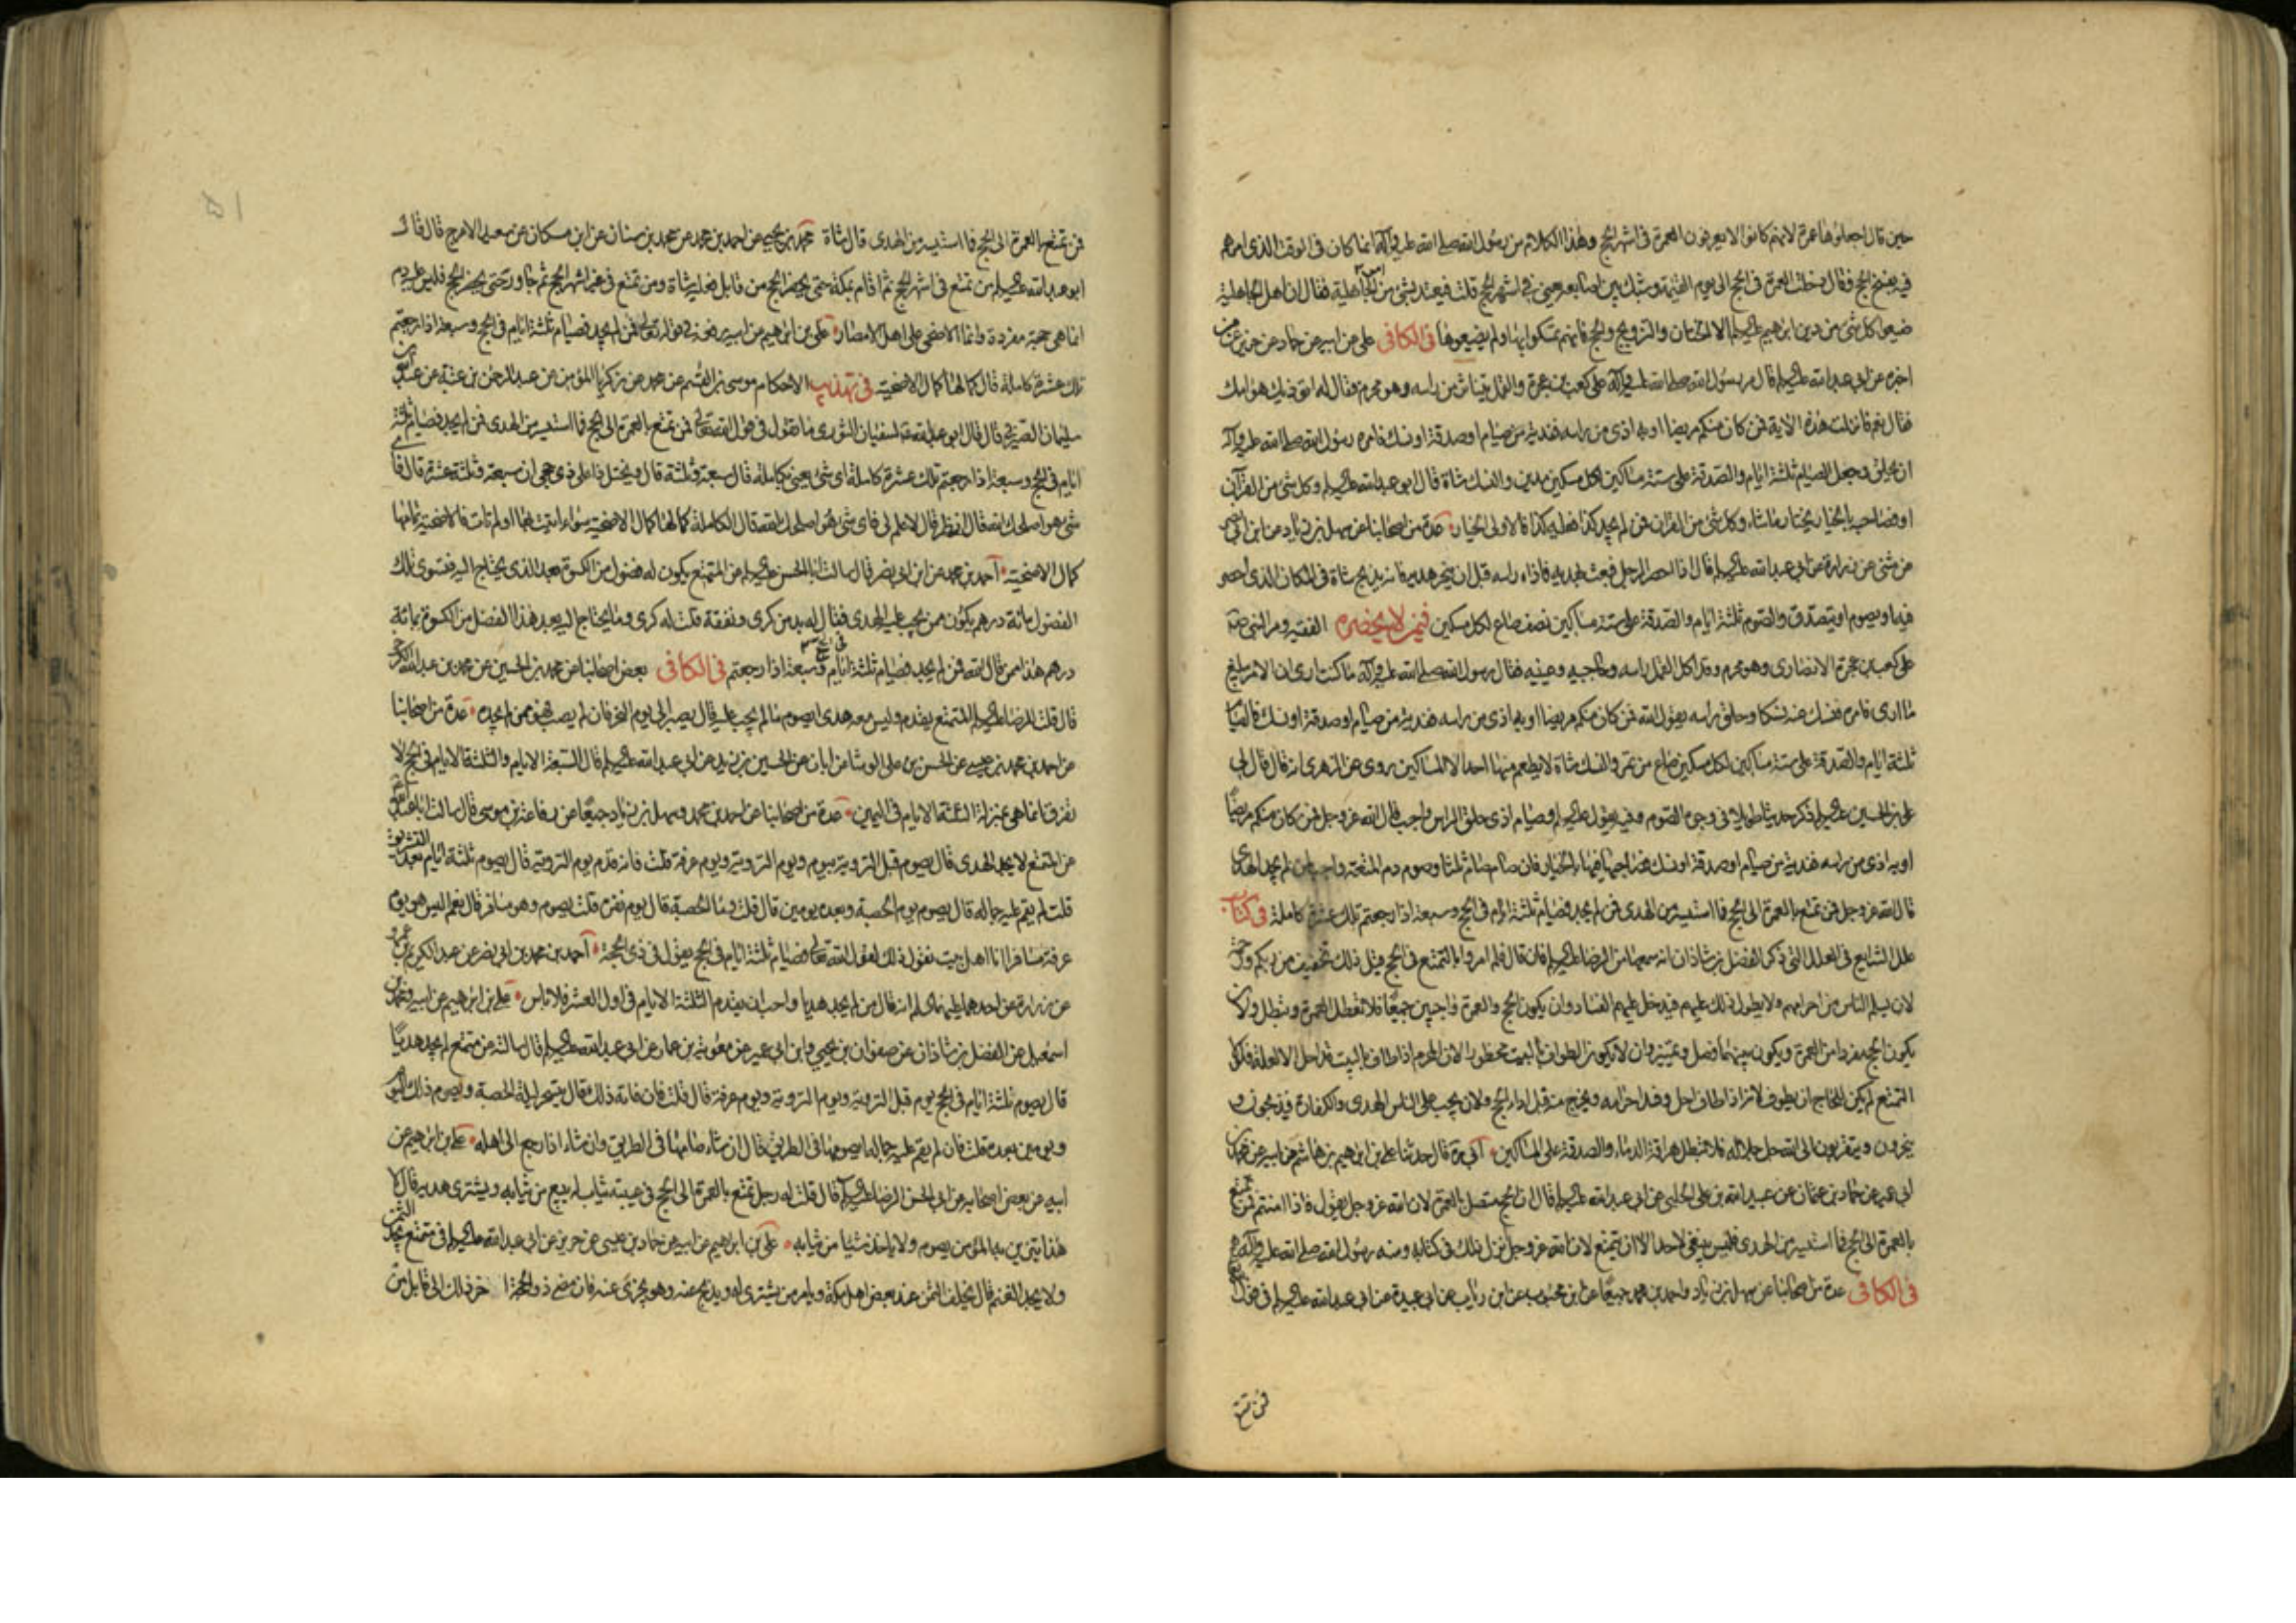 حين قال اجعلوها عمرة لانهم كانوا لا يعرفون العمرة فى اشهر الحج وهذا الكلام من رسول الله صلى الله عليه وآله انما كان فى الوقت الذى امرهم
فيه بفسخ الحج وقال دخلت العمرة فى الحج الى يوم القيمة وشبك بين اصابعه يعنى فى اشهر الحج قلت فيعتد بشئ من امر الجاهلية فقال ان اهل الجاهلية
ضيعوا كل شئ من دين ابراهيم عليه السلم الا الختان والتزويج والحج فانهم تمسكوا بها ولم يضيعوها فى الكافى على عن ابيه عن حماد عن حريز عمن
اخبره عن ابى عبد الله عليه السلم قال مر رسول الله صلى الله عليه وآله على كعب بن عجرة والقمل يتناثر من راسه وهو محرم فقال له اتؤذيك هوامك
فقال نعم فانزلت هذه الاية فمن كان منكم مريضا او به اذى من راسه ففدية من صيام او صدقة او نسك فامره رسول الله صلى الله عليه وآله
ان يحلق وجعل الصيام ثلثة ايام والصدقة على ستة مساكين لكل مسكين مدين والنسك شاة قال ابو عبد الله عليه السلم وكل شئ من القرآن
او فصاحبه بالخيار يختار ما شاء وكل شئ من القران فمن لم يجد كذا فعليه كذا فالاولى الخيار عدة من اصحابنا عن سهل بن زياد عن ابن ابى نصر
عن مثنى عن زرارة عن ابى عبد الله عليه السلم قال اذا احصر الرجل فبعث بهديه فاذاه راسه قبل ان ينحر هديه فانه يذبح شاة فى المكان الذى احصر
فيه او يصوم او يتصدق والصوم ثلثة ايام والصدقة على ستة مساكين نصف صاع لكل مسكين فيمن لا يحضره الفقيه ومر النبى ص
على كعب بن عجرة الانصارى وهو محرم وقد اكل القمل راسه وحاجبيه وعينيه فقال رسول الله صلى الله عليه وآله ما كنت ارى ان الامر يبلغ
ما ارى فامره فنسك عنه نسكا وحلق راسه يقول الله فمن كان منكم مريضا او به اذى من راسه ففدية من صيام او صدقة او نسك فالصيام
ثلثة ايام والصدقة على ستة مساكين لكل مسكين صاع من تمر والنسك شاة لا يطعم منها احد الا المساكين روى عن الزهرى انه قال قال لى
على بن الحسين عليه السلم ذكر حديثا طويلا فى وجوه الصوم وفيه يقول عليه السلم وصيام اذى حلق الراس واجب قال الله عز وجل فمن كان منكم مريضا
او به اذى من راسه ففدية من صيام او صدقة او نسك فصاحبها فيها بالخيار فان صام صام ثلثا وصوم دم المتعة واجب لمن لم يجد الهدى
قال الله عز وجل فمن تمتع بالعمرة الى الحج فما استيسر من الهدى فمن لم يجد فصيام ثلثة ايام فى الحج وسبعة اذا رجعتم تلك عشرة كاملة فى كتاب
علل الشرايع فى العلل التى ذكر الفضل بن شاذان انه سمعها من الرضا عليه السلم فان قال فلم امروا بالتمتع فى الحج قيل ذلك تخفيف من ربكم ورحمة
لان يسلم الناس من احرامهم ولا يطول ذلك عليهم فيدخل عليهم الفساد وان يكون الحج والعمرة واجبين جميعا فلا تعطل العمرة وتبطل ولان
يكون الحج مفردا من العمرة ويكون بينهما فصل وتمييز وان لا يكون الطواف بالبيت محظورا لان المحرم اذا طاف بالبيت قد احل الا لعلة فلولا
التمتع لم يكن للحاج ان يطوف لانه اذا طاف احل وفسد احرامه ويخرج منه قبل اداء الحج ولان يجب على الناس الهدى والكفارة فيذبحون و
ينحرون ويتقربون الى الله جل جلاله فلا تبطل هراقة الدماء والصدقة على المساكين ابى ره قال حدثنا على بن ابراهيم بن هاشم عن ابيه عن محمد بن
ابى عمير عن حماد بن عثمان عن عبيد الله بن على الحلبى عن ابى عبد الله عليه السلم قال ان الحج متصل بالعمرة لان الله عز وجل يقول فاذا امنتم فمن تمتع
بالعمرة الى الحج فما استيسر من الهدى فليس ينبغى لاحد الا ان يتمتع لان الله عز وجل انزل ذلك فى كتابه وسنه رسول الله صلى الله عليه وآله
فى الكافى عدة من اصحابنا عن سهل بن زياد واحمد بن محمد جميعا عن ابن محبوب عن ابن رئاب عن ابى عبيدة عن ابى عبد الله عليه السلم فى
فمن تمتع
۵۱
فمن تمتع بالعمرة الى الحج فما استيسر من الهدى قال شاة محمد بن يحيى عن احمد بن محمد عن محمد بن سنان عن ابن مسكان عن سعيد الاعرج قال قال
ابو عبد الله عليه السلم من تمتع فى اشهر الحج ثم اقام بمكة حتى يحضر الحج من قابل فعليه شاة ومن تمتع فى غير اشهر الحج ثم جاور حتى يحضر الحج فليس عليه دم
انما هى حجة مفردة وانما الاضحى على اهل الامصار على بن ابراهيم عن ابيه رفعه فى قوله تعالى فمن لم يجد فصيام ثلثة ايام فى الحج وسبعة اذا رجعتم
تلك عشرة كاملة قال كمالها كمال الاضحية فى تهذيب الاحكام موسى بن القسم عن محمد عن زكريا المؤمن عن عبد الرحمن بن عتبة عن عبد الله بن
سليمان الصيرفى قال قال ابو عبد الله ع لسفيان الثورى ما تقول فى قول الله تعالى فمن تمتع بالعمرة الى الحج فما استيسر من الهدى فمن لم يجد فصيام ثلثة
ايام فى الحج وسبعة اذا رجعتم تلك عشرة كاملة اى شئ يعنى بكاملة قال سبعة وثلثة قال ويختل ذا على ذى حجى ان سبعة وثلثة عشرة قال فاى
شئ هو اصلحك الله قال انظر قال لا علم لى فاى شئ هو اصلحك الله قال الكاملة كمالها كمال الاضحية سواء اتيت بها او لم تات فالاضحية تمامها
كمال الاضحية احمد بن محمد عن ابن ابى نصر قال سالت ابا الحسن عليه السلم عن المتمتع يكون له فضول من الكسوة بعد الذى يحتاج اليه فتسوى تلك
الفضول مائة درهم يكون ممن يجب عليه الهدى فقال له بد من كرى ونفقة قلت له كرى وما يحتاج اليه بعد هذا الفضل من الكسوة قال واى شئ كسوة بمائة
درهم هذا ممن قال الله فمن لم يجد فصيام ثلثة ايام فى الحج وسبعة اذا رجعتم فى الكافى بعض اصحابنا عن محمد بن الحسين عن محمد بن عبد الله الكرخى
قال قلت للرضا عليه السلم المتمتع يقدم وليس معه هدى ايصوم ما لم يجب عليه قال يصبر الى يوم النحر فان لم يصب فهو ممن لم يجد عدة من اصحابنا
عن احمد بن محمد بن عيسى عن الحسن بن على الوشا عن ابان عن الحسين بن زيد عن ابى عبد الله عليه السلم قال السبعة الايام والثلثة الايام فى الحج لا
تفرق انما هى بمنزلة الثلثة الايام فى اليمين عدة من اصحابنا عن احمد بن محمد وسهل بن زياد جميعا عن رفاعة بن موسى قال سالت ابا عبد الله
عن المتمتع لا يجد الهدى قال يصوم قبل التروية بيوم ويوم التروية ويوم عرفة قلت فانه قدم يوم التروية قال يصوم ثلثة ايام بعد التشريق
قلت لم يقم عليه جماله قال يصوم يوم الحصبة وبعده يومين قال قلت وما الحصبة قال يوم نفره قلت يصوم وهو مسافر قال نعم اليس هو يوم
عرفة مسافرا انا اهل بيت نقول ذلك لقول الله تعالى فصيام ثلثة ايام فى الحج يقول فى ذى الحجة احمد بن محمد بن ابى نصر عن عبد الكريم بن عمرو
عن زرارة عن احدهما عليهما السلم انه قال من لم يجد هديا واحب ان يقدم الثلثة الايام فى اول العشر فلا باس على بن ابراهيم عن ابيه ومحمد بن
اسمعيل عن الفضل بن شاذان عن صفوان بن يحيى وابن ابى عمير عن معوية بن عمار عن ابى عبد الله عليه السلم قال سالته عن متمتع لم يجد هديا
قال يصوم ثلثة ايام فى الحج يوم قبل التروية ويوم التروية ويوم عرفة قال قلت فان فاته ذلك قال يتسحر ليلة الحصبة ويصوم ذلك اليوم
ويومين بعده قلت فان لم يقم عليه جماله ايصومها فى الطريق قال ان شاء صامها فى الطريق وان شاء اذا رجع الى اهله على بن ابراهيم عن
ابيه عن بعض اصحابه عن ابى الحسن الرضا عليه السلم قال قلت له رجل تمتع بالعمرة الى الحج فى عيبته ثياب له يبيع من ثيابه ويشترى هديه قال لا
هذا يتزين به المؤمن يصوم ولا ياخذ شيئا من ثيابه على بن ابراهيم عن ابيه عن حماد بن عيسى عن حريز عن ابى عبد الله عليه السلم فى متمتع يجد الثمن
ولا يجد الغنم قال يخلف الثمن عند بعض اهل مكة ويامر من يشترى له ويذبح عنه وهو يجزى عنه فان مضى ذو الحجة اخر ذلك الى قابل من